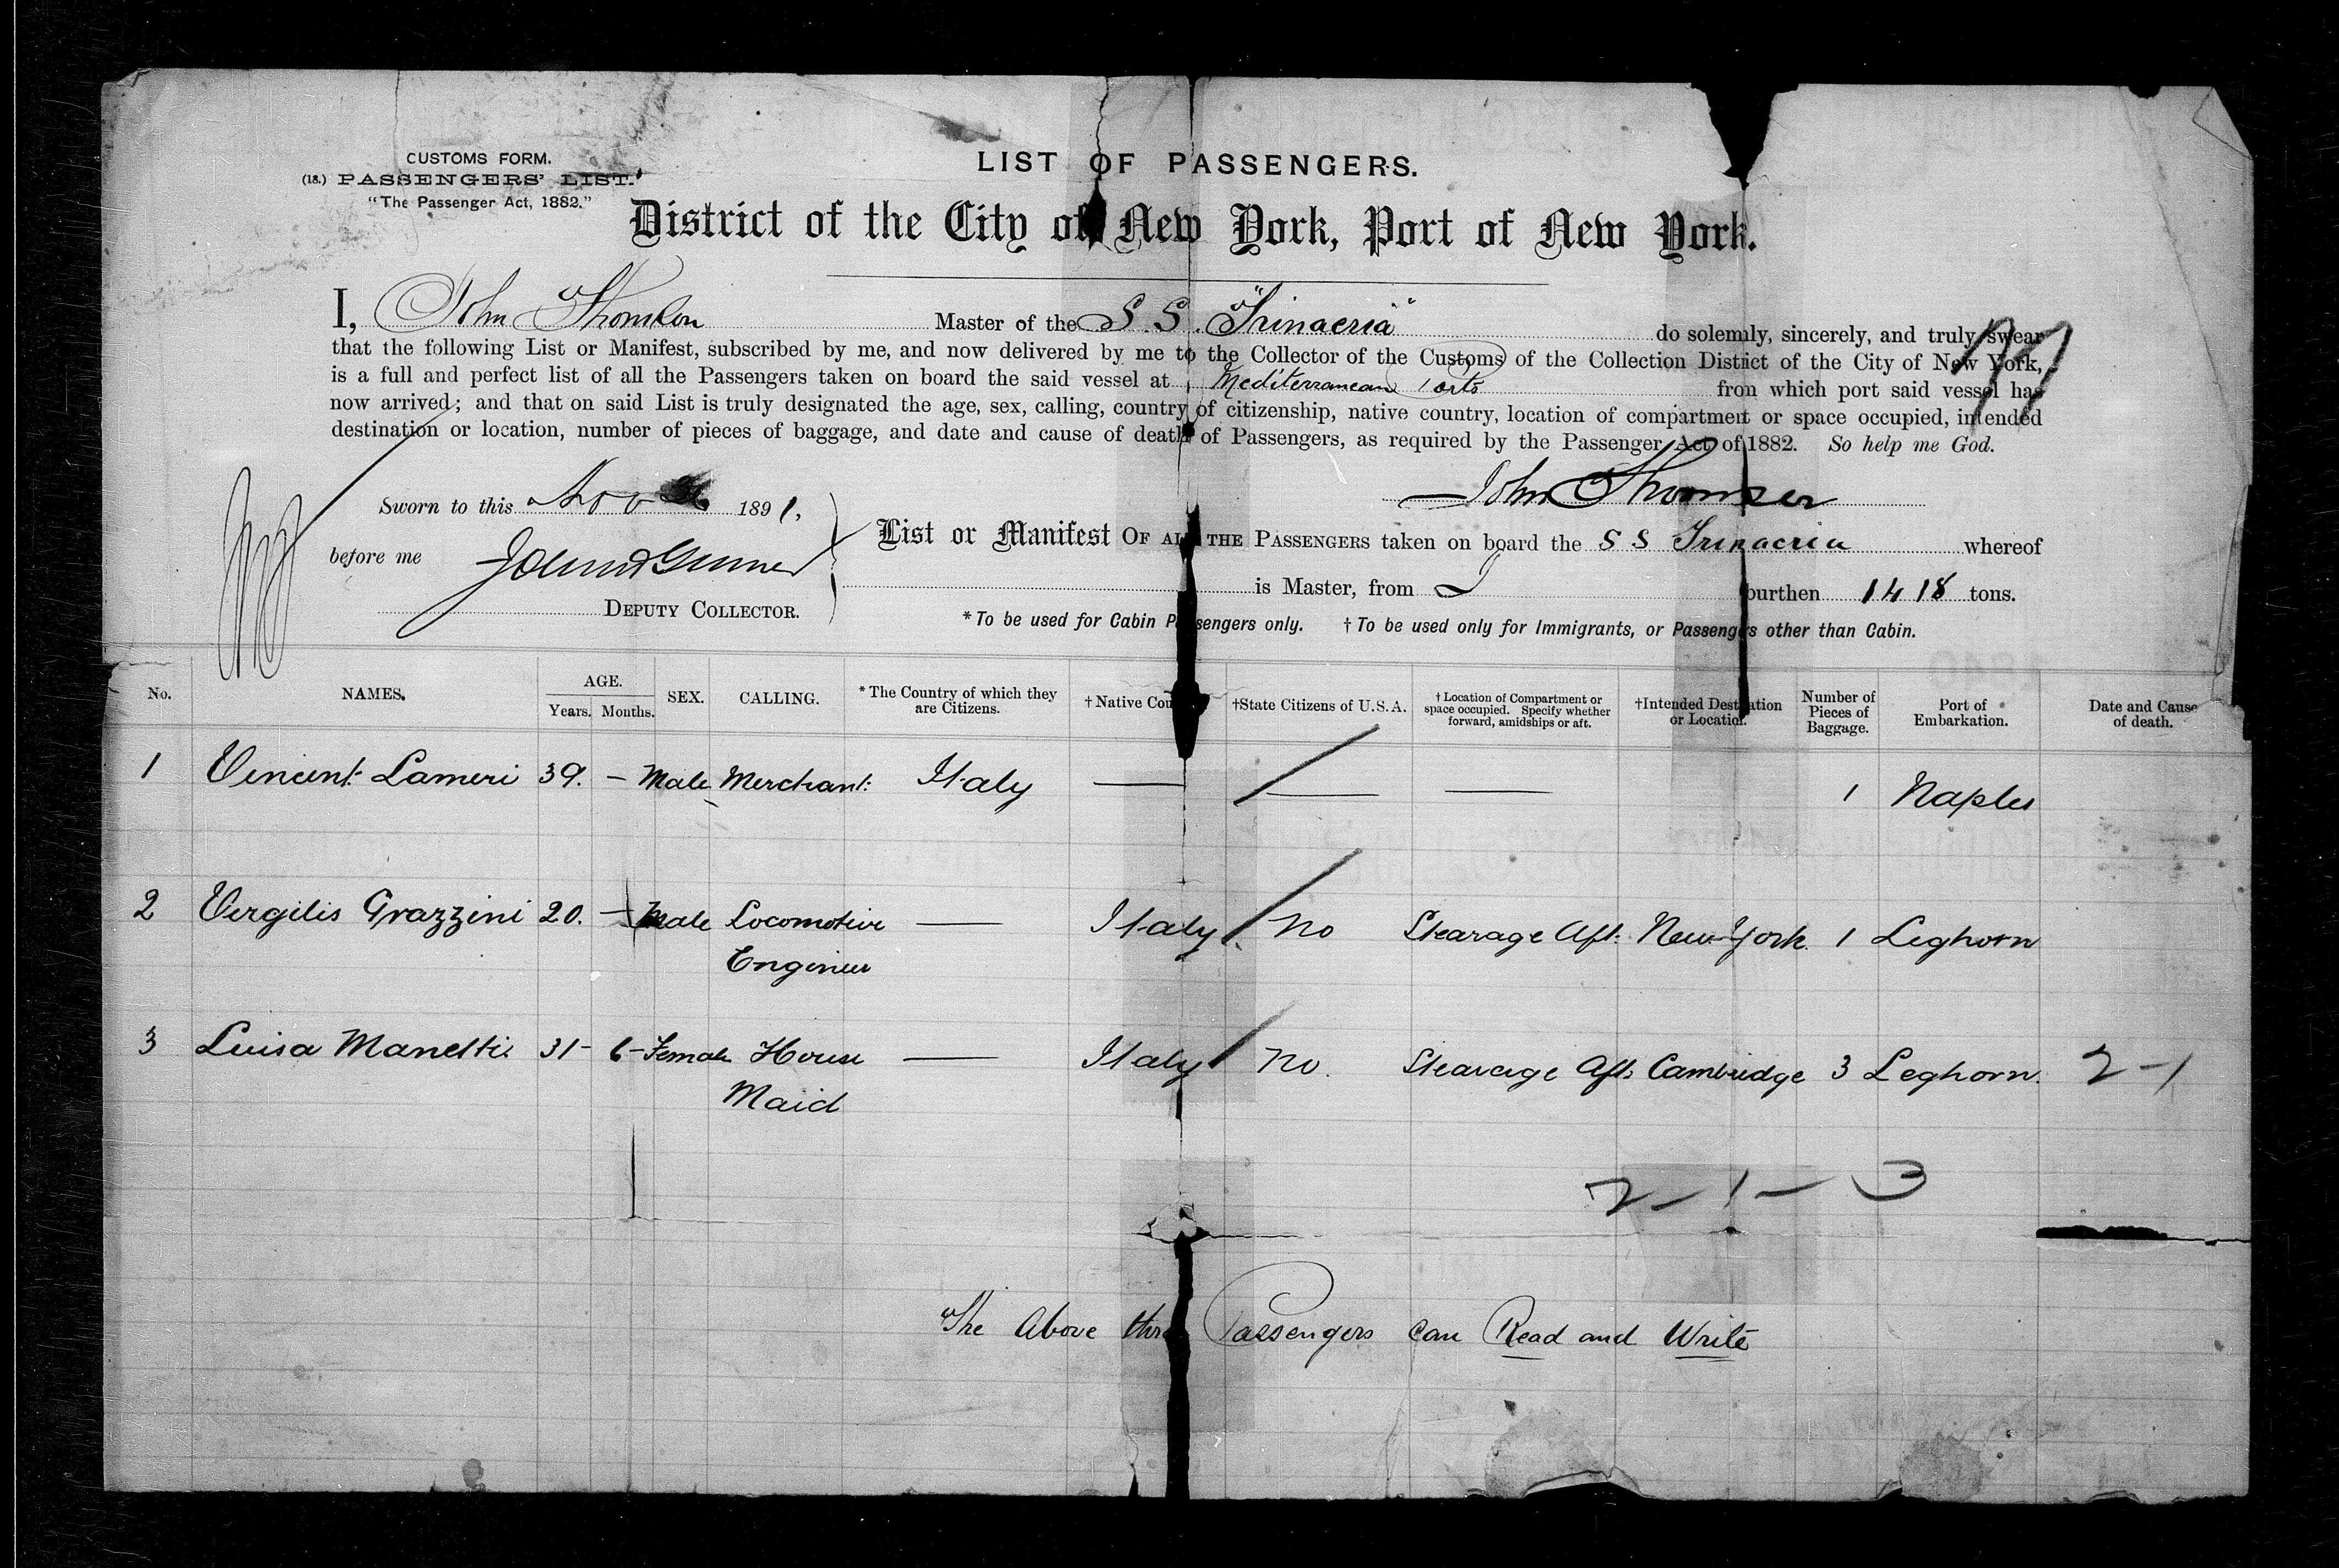 CUSTOMS FORM.
(18.) PASSENGERS' LIST.
"The Passenger Act, 1882."
LIST OF PASSENGERS.
District of the City of New York, Port of New York.
I, John Thomson Master of the S.S. "Trinacria" do solemnly, sincerely, and truly swear
that the following List or Manifest, subscribed by me, and now delivered by me to the Collector of the Customs of the Collection District of the City of New York,
is a full and perfect list of all the Passengers taken on board the said vessel at Mediterranean Ports from which port said vessel has
now arrived; and that on said List is truly designated the age, sex, calling, country of citizenship, native country, location of compartment or space occupied, intended
destination or location, number of pieces of baggage, and date and cause of death of Passengers, as required by the Passenger Act of 1882. So help me God.
Sworn to this Nov 1891,
John Thomson
before me
List or Manifest OF ALL THE PASSENGERS taken on board the S S Trinacria whereof
is Master, from burthen 1418 tons.
DEPUTY COLLECTOR.
* To be used for Cabin Passengers only. † To be used only for Immigrants, or Passengers other than Cabin.
No. NAMES. AGE. Years. Months. SEX. CALLING. * The Country of which they are Citizens. † Native Cou †State Citizens of U.S.A. † Location of Compartment or space occupied. Specify whether forward, amidships or aft. †Intended Destination or Location. Number of Pieces of Baggage. Port of Embarkation. Date and Cause of death.
1 Vincent Lameri 39. – Male Merchant Italy — — — 1 Naples
2 Vergilis Grazzini 20. – Male Locomotive Engineer — Italy No Stearage Aft. New York. 1 Leghorn
3 Luisa Manetti. 31 - 6 - Female House Maid — Italy No. Stearage Aft. Cambridge 3 Leghorn. 2-1
2-1-3
The Above three Passengers can Read and Write